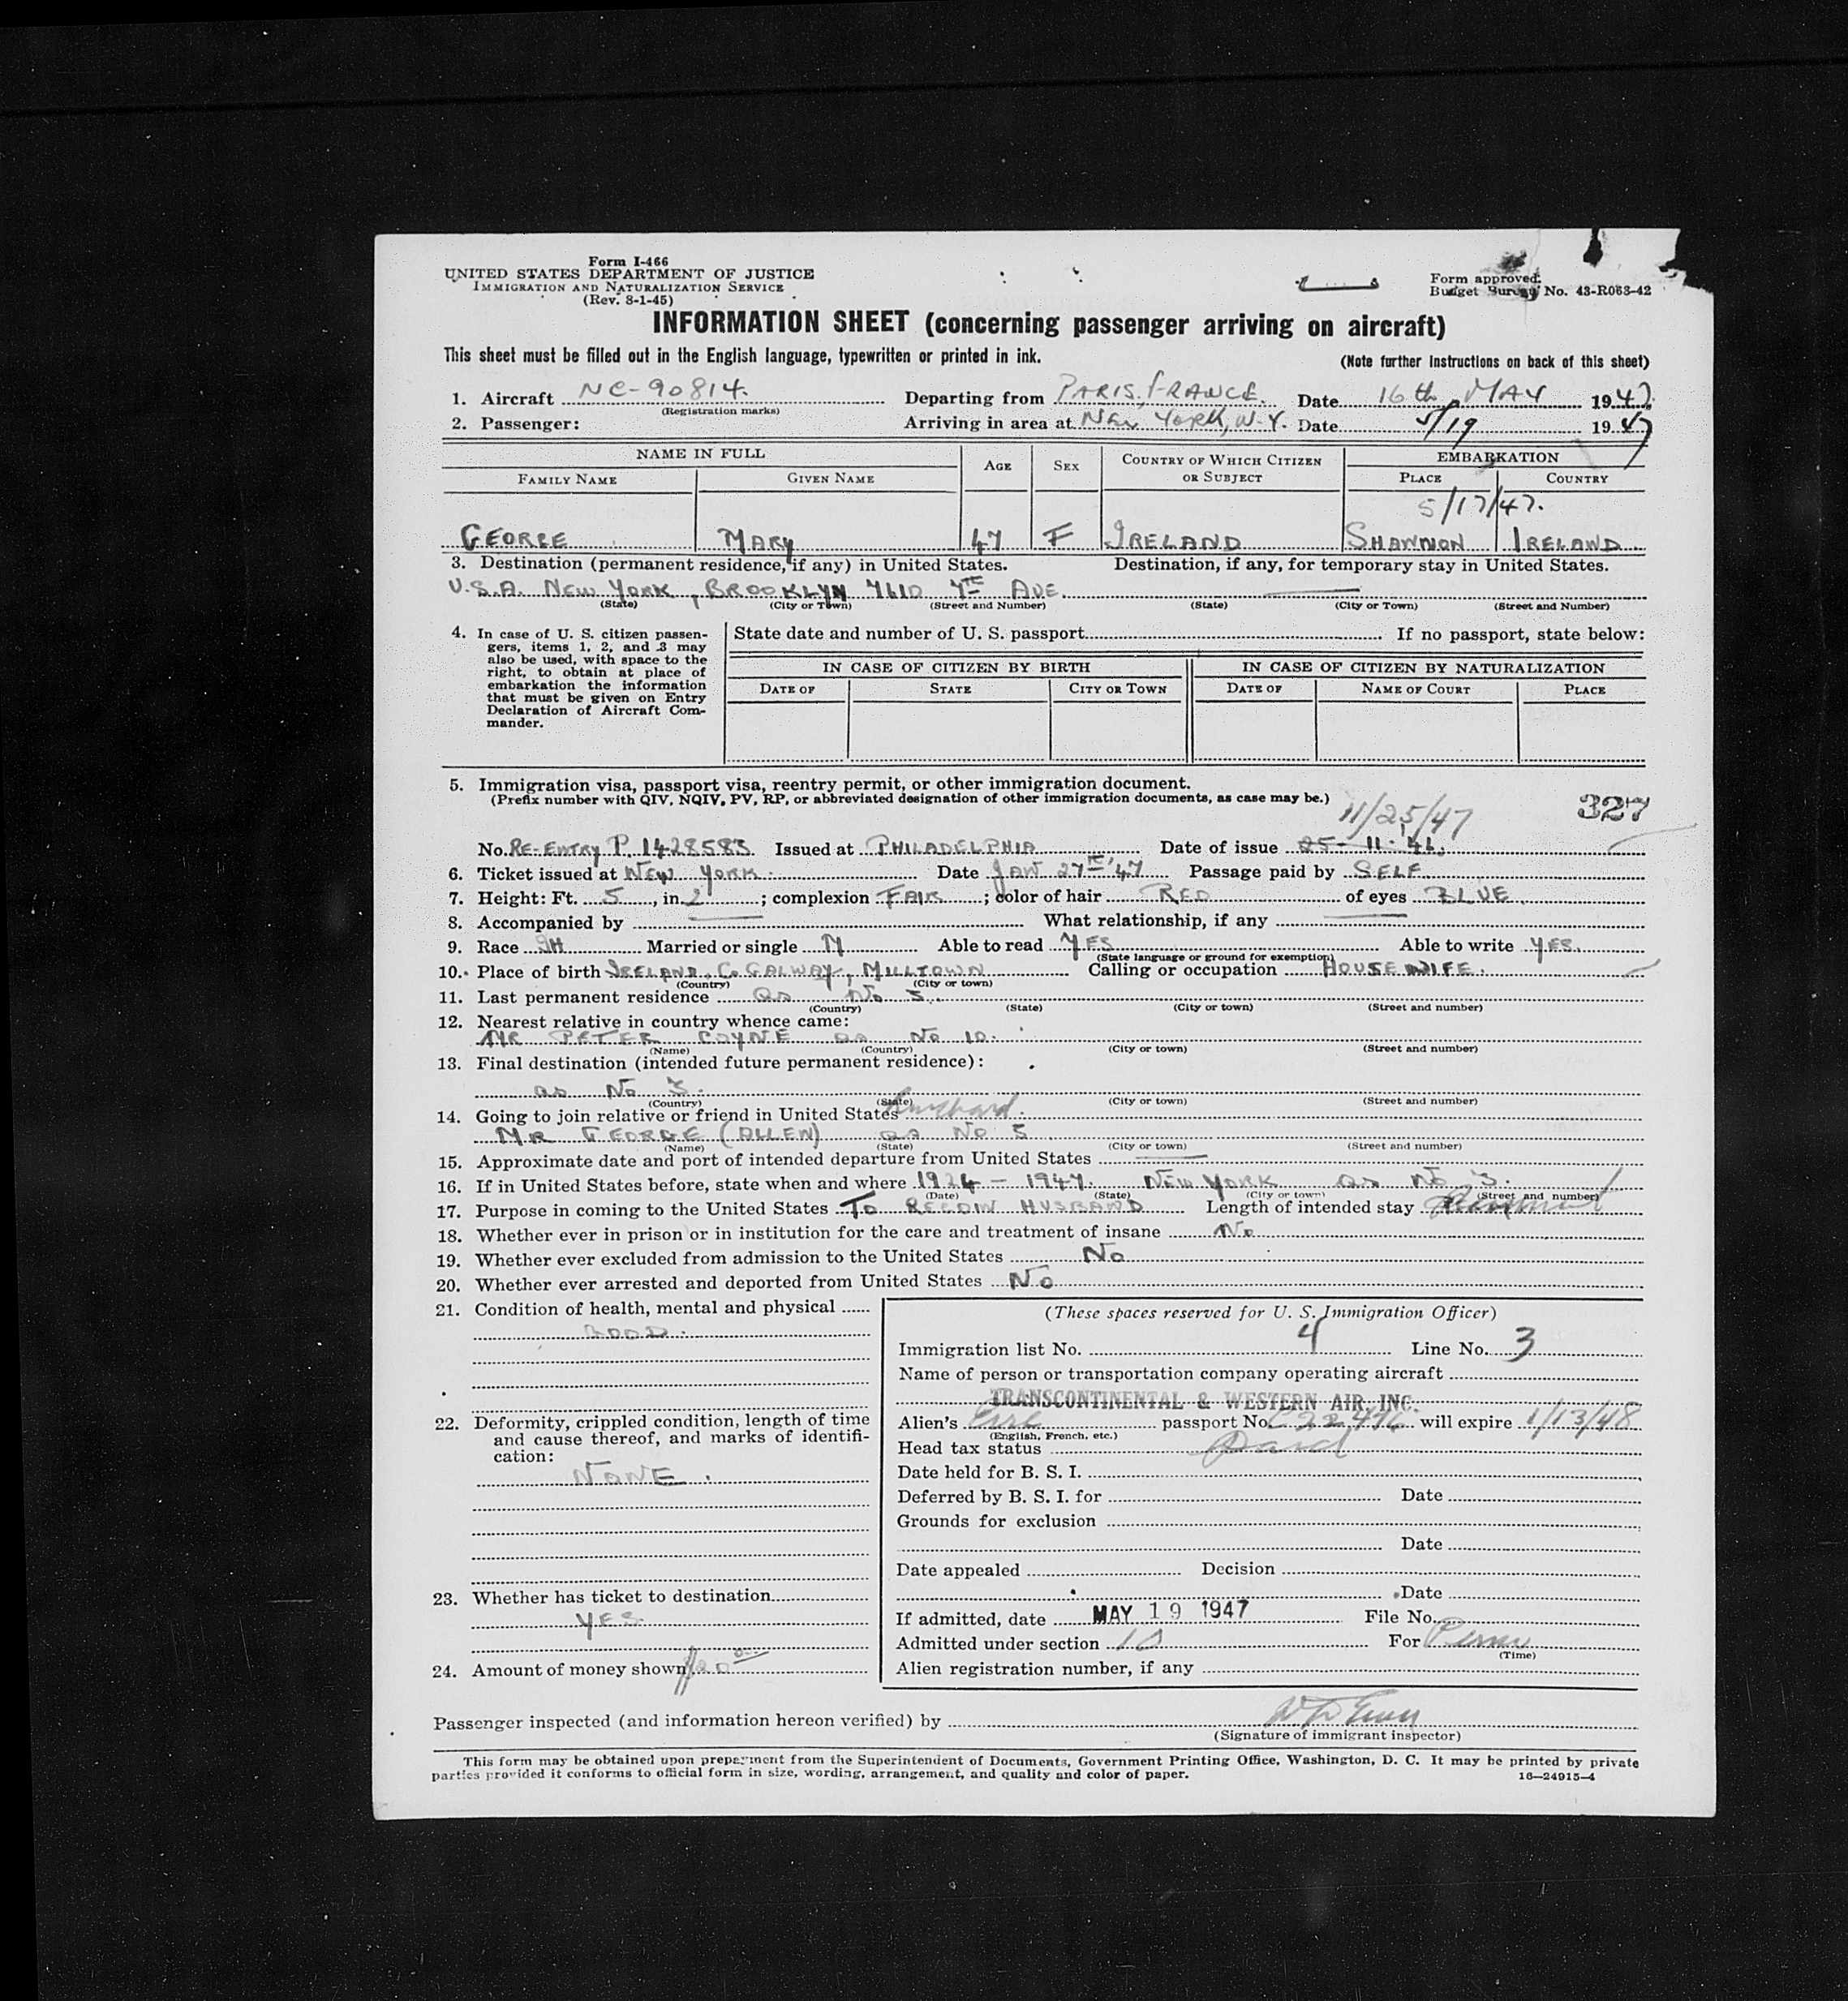 Form I-466
UNITED STATES DEPARTMENT OF JUSTICE
IMMIGRATION AND NATURALIZATION SERVICE
(Rev. 8-1-45)
Form approved.
Budget Bureau No. 43-R063-42
INFORMATION SHEET (concerning passenger arriving on aircraft)
This sheet must be filled out in the English language, typewritten or printed in ink. (Note further instructions on back of this sheet)
1. Aircraft NC-90814. Departing from PARIS, FRANCE. Date 16th MAY 1947
(Registration marks)
2. Passenger: Arriving in area at NEW YORK, N.Y. Date 5/19 1947
NAME IN FULL AGE SEX COUNTRY OF WHICH CITIZEN OR SUBJECT EMBARKATION
FAMILY NAME GIVEN NAME PLACE COUNTRY
5/17/47.
GEORGE MARY 47 F IRELAND SHANNON IRELAND
3. Destination (permanent residence, if any) in United States. Destination, if any, for temporary stay in United States.
U.S.A. NEW YORK, BROOKLYN 7610 7TH AVE.
(State) (City or Town) (Street and Number) (State) (City or Town) (Street and Number)
4. In case of U. S. citizen passengers, items 1, 2, and 3 may also be used, with space to the right, to obtain at place of embarkation the information that must be given on Entry Declaration of Aircraft Commander.
State date and number of U. S. passport If no passport, state below:
IN CASE OF CITIZEN BY BIRTH IN CASE OF CITIZEN BY NATURALIZATION
DATE OF STATE CITY OR TOWN DATE OF NAME OF COURT PLACE
5. Immigration visa, passport visa, reentry permit, or other immigration document.
(Prefix number with QIV, NQIV, PV, RP, or abbreviated designation of other immigration documents, as case may be.)
11/25/47 327
No. RE-ENTRY P. 1428583 Issued at PHILADELPHIA Date of issue 25-11-46.
6. Ticket issued at NEW YORK. Date JAN 27TH '47 Passage paid by SELF
7. Height: Ft. 5, in. 2; complexion FAIR; color of hair RED of eyes BLUE.
8. Accompanied by What relationship, if any
9. Race IH Married or single M Able to read YES Able to write YES.
(State language or ground for exemption)
10. Place of birth IRELAND, Co GALWAY, MILLTOWN Calling or occupation HOUSEWIFE.
(Country) (City or town)
11. Last permanent residence as No 3.
(Country) (State) (City or town) (Street and number)
12. Nearest relative in country whence came:
MR PETER COYNE as No 10.
(Name) (Country) (City or town) (Street and number)
13. Final destination (intended future permanent residence):
as No 3.
(Country) (State) (City or town) (Street and number)
14. Going to join relative or friend in United States husband.
MR GEORGE (ALLEN) as No 3
(Name) (State) (City or town) (Street and number)
15. Approximate date and port of intended departure from United States
16. If in United States before, state when and where 1924 - 1947. NEW YORK as No 3.
(Date) (State) (City or town) (Street and number)
17. Purpose in coming to the United States TO REJOIN HUSBAND Length of intended stay Permanent
18. Whether ever in prison or in institution for the care and treatment of insane No
19. Whether ever excluded from admission to the United States No
20. Whether ever arrested and deported from United States No
21. Condition of health, mental and physical
GOOD.
22. Deformity, crippled condition, length of time and cause thereof, and marks of identification:
NONE.
23. Whether has ticket to destination
YES
24. Amount of money shown
(These spaces reserved for U. S. Immigration Officer)
Immigration list No. 4 Line No. 3
Name of person or transportation company operating aircraft
TRANSCONTINENTAL & WESTERN AIR, INC.
Alien's Eire passport No. C22476 will expire 1/13/48
(English, French, etc.)
Head tax status Paid
Date held for B. S. I.
Deferred by B. S. I. for Date
Grounds for exclusion
Date
Date appealed Decision
Date
If admitted, date MAY 19 1947 File No.
Admitted under section For Perm
(Time)
Alien registration number, if any
Passenger inspected (and information hereon verified) by
(Signature of immigrant inspector)
This form may be obtained upon prepayment from the Superintendent of Documents, Government Printing Office, Washington, D. C. It may be printed by private
parties provided it conforms to official form in size, wording, arrangement, and quality and color of paper. 16—24915-4